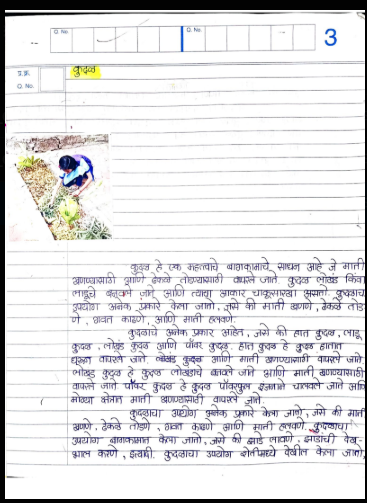 Q. No.
Q. No.
3
प्र.क्र.
Q. No.
कुदळ
कुदळ हे एक महत्वाचे बागकामाचे साधन आहे जे माती
खणण्यासाठी आणि ढेकळे तोडण्यासाठी वापरले जाते कुदळ लोखंड किंवा
लाडूचे बनवले जाते आणि त्याचा आकार चाकूसारखा असतो. कुदळाचा
उपयोग अनेक प्रकारे केला जातो, जसे की माती खणणे, ढेकळे तोड
णे, गवत काढणे, आणि माती हलवणे.
कुदळाचे अनेक प्रकार आहेत, जसे की हात कुदळ, लाडू
कुदळ, लोखंड कुदळ आणि पॉवर कुदळ. हात कुदळ हे कुदळ हातात
धरून वापरले जाते. लोखंड कुदळ आणि माती खणण्यासाठी वापरले जाते
लोखंड कुदळ हे कुदळ लोखंडाचे बनवले जाते आणि माती खणण्यासाठी
वापरले जाते पॉवर कुदळ हे कुदळ पॉवरफुल इंजनाने चालवले जाते आणि
मोठ्या क्षेत्रात माती खणण्यासाठी वापरले जाते.
कुदळाचा उपयोग अनेक प्रकारे केला जातो, जसे की माती
खणणे, ढेकळे तोडणे, गवत काढणे आणि माती हलवणे. कुदळाचा
उपयोग बागकामात केला जातो, जसे की झाडे लावणे, झाडांची देख-
भाल करणे, इत्यादी. कुदळाचा उपयोग शेतीमध्ये देखील केला जातो,